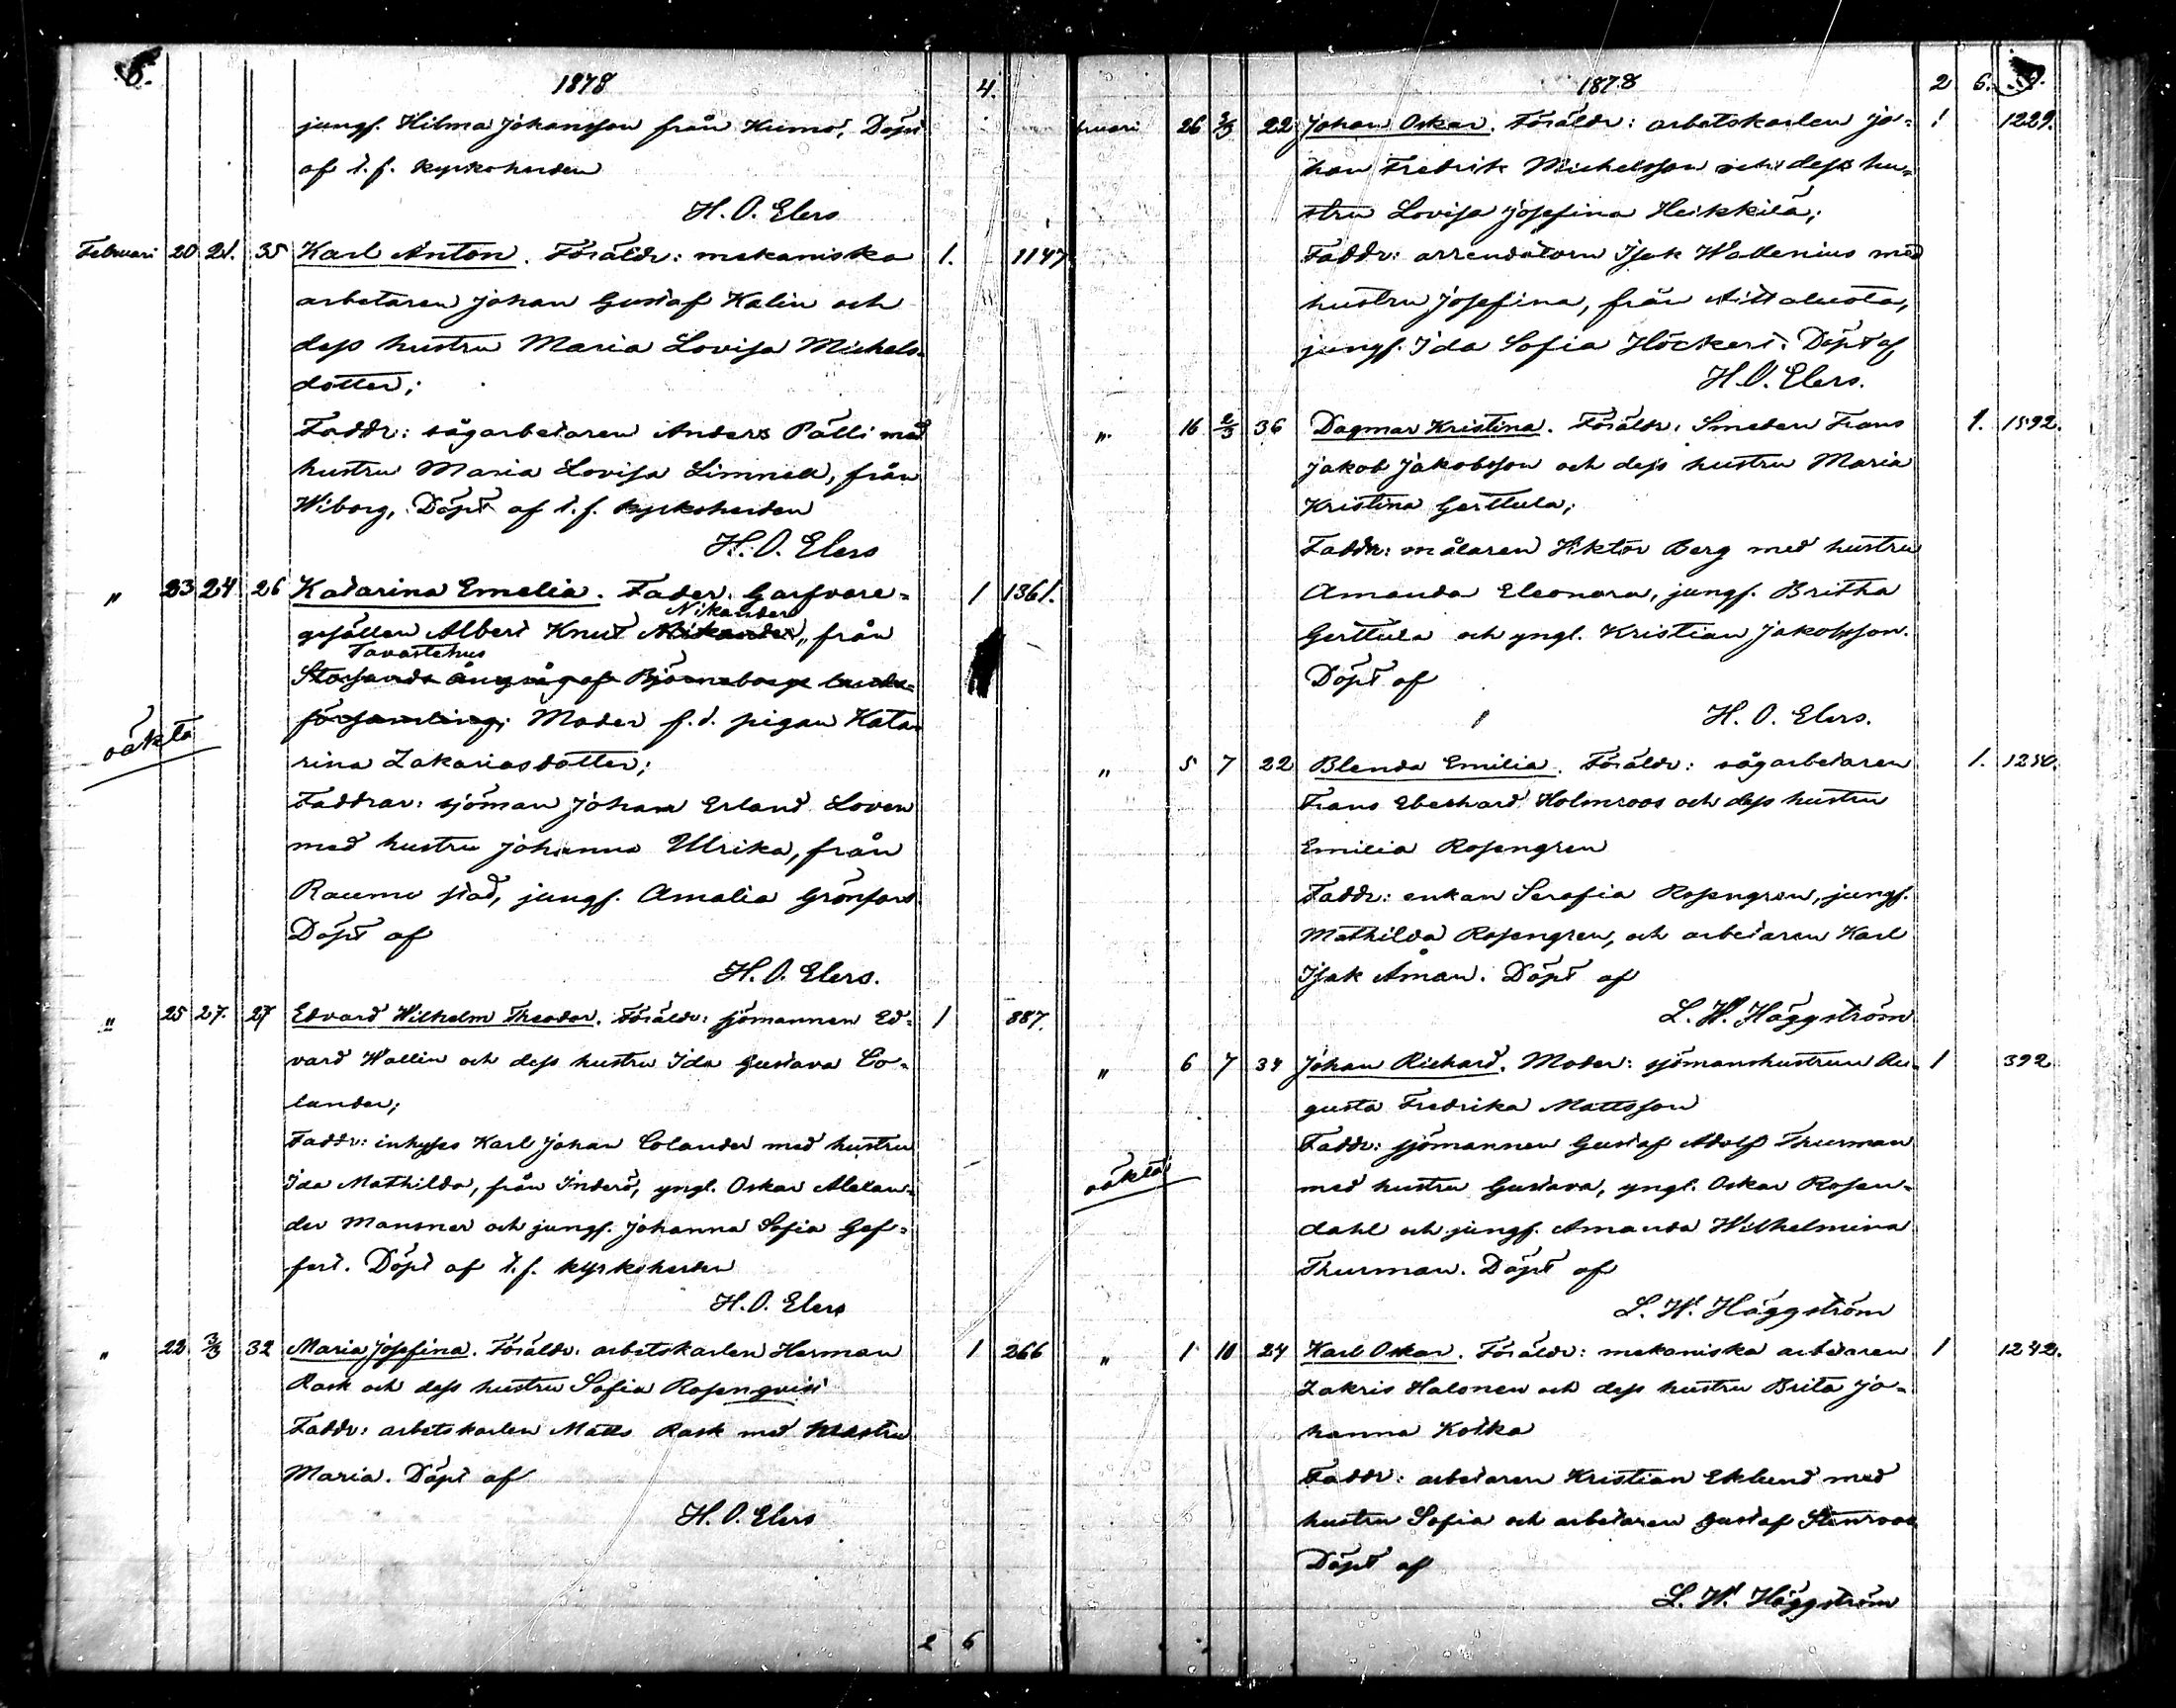 6.
1878
4.
jungf. Hilma Johansson från Kumo, Döpt
af t. f. kyrkoherden
H. O. Elers
Februari 20 21. 35 Karl Anton. Föräldr: mekaniska 1. 1147
arbetaren Johan Gustaf Kalin och
dess hustru Maria Lovisa Michels-
dotter;
Faddr: sågarbetaren Anders Pälli med
hustru Maria Lovisa Limnell, från
Wiborg, Döpt af t. f. kyrkoherden
H. O. Elers
" 23 24 26 Katarina Emelia. Fader: Garfvare- 1 1361.
Nikander
gesällen Albert Knut Nikander, från
Tavastehus
Storsands ångsåg af Björneborgs lands-
församling; Moder f. d. pigan Kata-
oäkta
rina Zakariasdotter;
Faddrar: sjöman Johan Erland Loven
med hustru Johanna Ulrika, från
Raumo stad, jungf. Amalia Grönfors.
Döpt af
H. O. Elers.
" 25 27. 27 Edvard Wilhelm Theodor. Föräldr: sjömannen Ed- 1 887.
vard Wallin och dess hustru Ida Gustava Co-
lander;
Faddr: inhyses Karl Johan Colander med hustru
Ida Mathilda, från Inderö, yngl. Oskar Alexan-
der Mansner och jungf. Johanna Sofia Gef-
fert. Döpt af t. f. kyrkoherden
H. O. Elers
" 22 3/3 32 Maria Josefina. Föräldr: arbetskarlen Herman 1 266
Rask och dess hustru Sofia Rosenqvist
Faddr: arbetskarlen Matts Rask med hustru
Maria. Döpt af
H. O. Elers
2 6
1878
2 6.
bruari 26 2/3 22 Johan Oskar. Föräldr: arbetskarlen Jo- 1 1229.
han Fredrik Michelsson och dess hu-
stru Lovisa Josefina Heikkilä;
Faddr: arrendatorn Isak Wallenius med
hustru Josefina, från Aittaluota,
jungf. Ida Sofia Höckert. Döpt af
H. O. Elers.
" 16 2/3 36 Dagmar Kristina. Föräldr: Smeden Frans 1. 1592.
Jakob Jakobsson och dess hustru Maria
Kristina Gerttula;
Faddr: målaren Viktor Berg med hustru
Amanda Eleonora, jungf. Britha
Gerttula och yngl. Kristian Jakobsson.
Döpt af
H. O. Elers.
" 5 7 22 Blenda Emilia. Föräldr: sågarbetaren 1. 1250.
Frans Eberhard Holmroos och dess hustru
Emilia Rosengren
Faddr: enkan Serafia Rosengren, jungf.
Mathilda Rosengren, och arbetaren Karl
Isak Åman. Döpt af
L. W. Häggström
" 6 7 34 Johan Richard. Moder: sjömanshustrun Au- 1 392
gusta Fredrika Mattsson
Faddr: sjömannen Gustaf Adolf Thurman
oäkta
med hustru Gustava, yngl. Oskar Rosen-
dahl och jungf. Amanda Wilhelmina
Thurman. Döpt af
L. W. Häggström
" 1 10 24 Karl Oskar. Föräldr: mekaniska arbetaren 1 1242.
Zakris Halonen och dess hustru Brita Jo-
hanna Kotka
Faddr: arbetaren Kristian Eklund med
hustru Sofia och arbetaren Gustaf Stenroos
Döpt af
L. W. Häggström